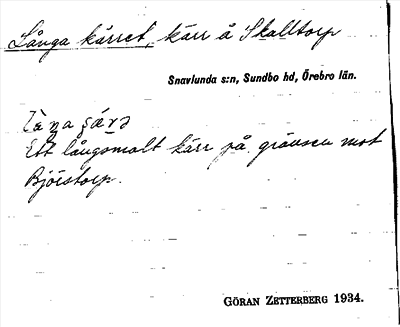 Långa kärret, kärr å Skalltorp
Snavlunda s:n, Sundbo hd, Örebro län.
Ett långsmalt kärr på gränsen mot
Björstorp.
GÖRAN ZETTERBERG 1934.